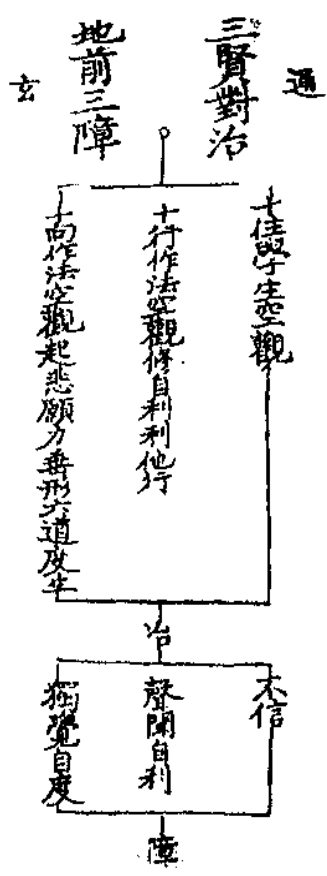 通
三賢對治
地前三障
玄
十住學生空觀
十行作法空觀修自利利他行
十向作法空觀起悲願力垂形六道度生
治
不信
聲聞自利
獨覺自度
障